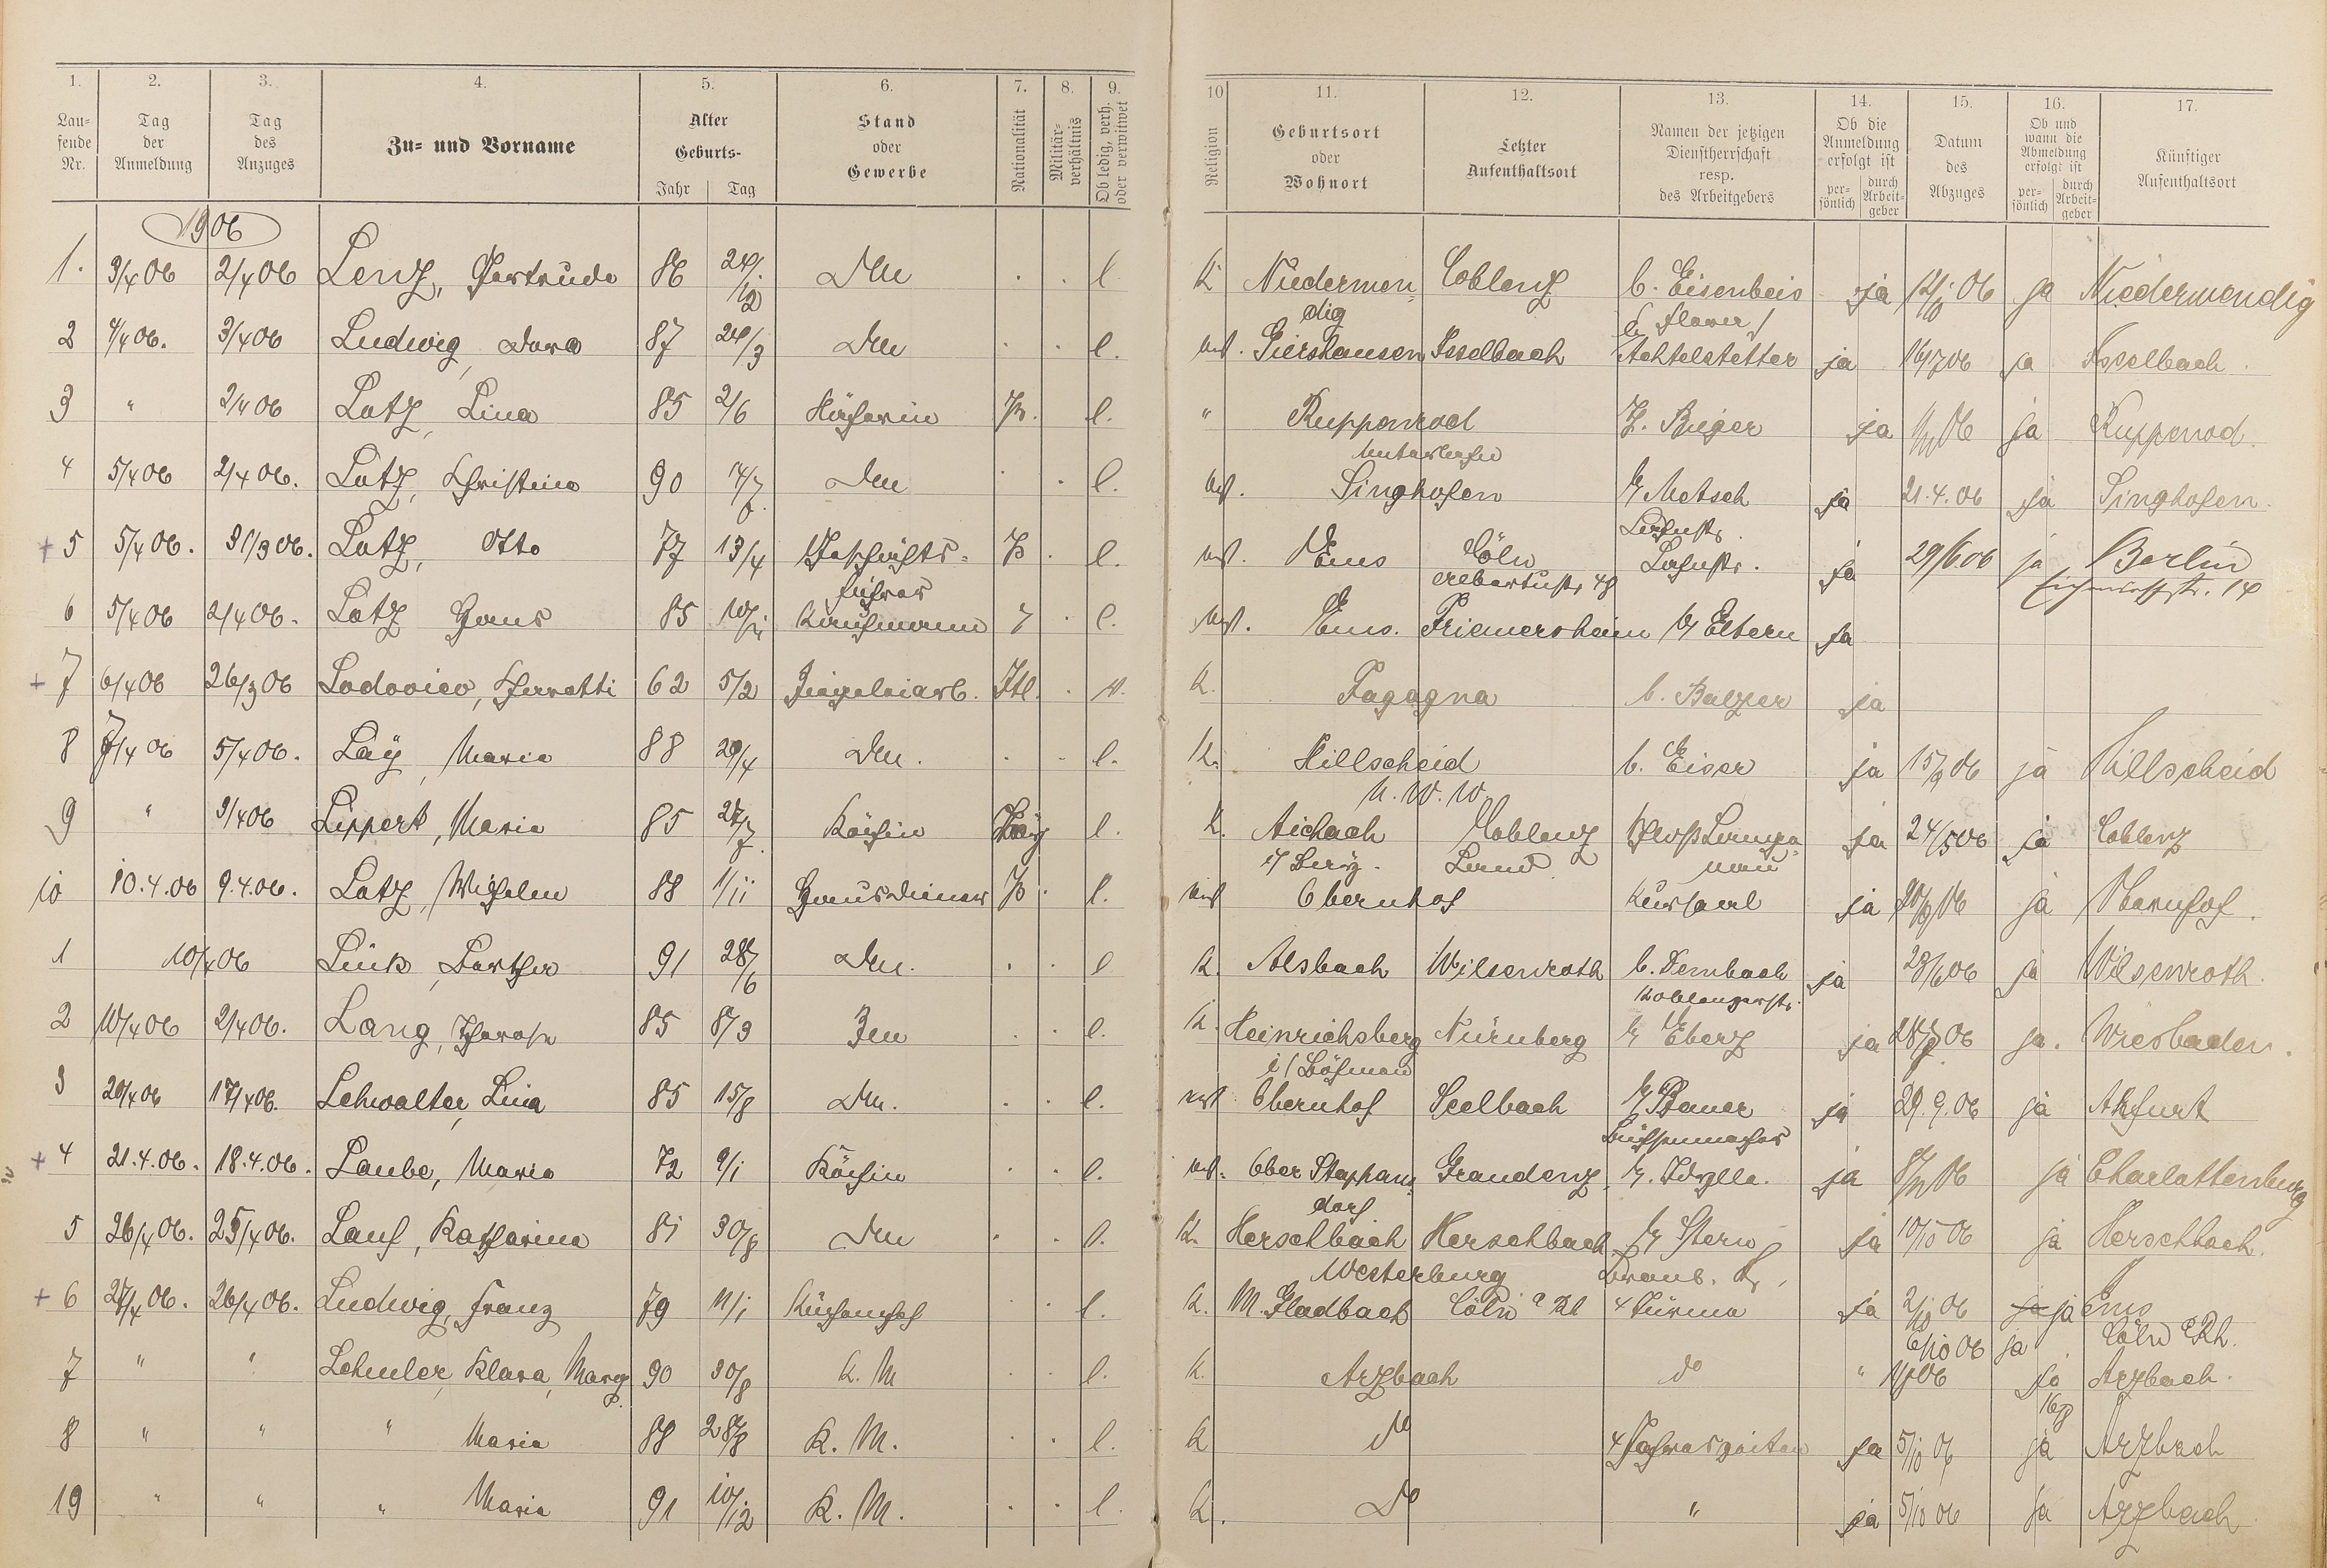 1. 2. 3. 4. 5. 6. 7. 8. 9. 10 11. 12. 13. 14. 15. 16. 17.
Laufende Nr. Tag der Anmeldung Tag des Anzuges Zu- und Vorname Alter Geburts- Jahr Tag Stand oder Gewerbe Nationalität Militärverhältnis Ob ledig, verh. oder verwitwet Religion Geburtsort oder Wohnort Letzter Aufenthaltsort Namen der jetzigen Dienstherrschaft resp. des Arbeitgebers Ob die Anmeldung erfolgt ist persönlich durch Arbeitgeber Datum des Abzuges Ob und wann die Abmeldung erfolgt ist persönlich durch Arbeitgeber Künftiger Aufenthaltsort
1906
1. 3/4 06 2/4 06 Lenz, Gertrude 86 24/12 Dm . . l. K Niedermendig Coblenz b. Eisenbeis ja 12/10 06 ja Niedermendig
2 4/4 06. 3/4 06 Ludwig, Dora 87 24/3 Dm . . l. Giershausen Isselbach Achtelstetter ja 16/7 06 ja Isselbach.
3 " 2/4 06 Lotz, Lina 85 2/6 Pr. l. " Ruppenrod Z. Bieger ja ja Ruppenrod.
4 5/4 06 2/4 06. Lotz, Christina 90 Dm . l. Unterlahn Singhofen b/ Metsch ja 21.4.06 ja Singhofen.
+ 5 5/4 06. 31/3 06. Lotz, Otto 77 13/4 Geschäftsführer P . l. Ems Cöln Lahnstr. Lahnstr. ja 29/6 06 ja Berlin
6 5/4 06 2/4 06. Lotz Hans 85 Kaufmann . l. Ems. Friemersheim b/ Eltern ja
+ 7 6/4 06 26/3 06 Lodovico, 62 5/2 Ziegeleiarb. Itl. . K. Fagagna b. Balzer ja
8 7/4 06 5/4 06. Laÿ, Maria 88 29/4 Dm. . . l. K. Hillscheid U. W. W. b. Eiser ja 15/9 06 ja Hillscheid
9 " 3/4 06 Lippert, Maria 85 27/7 Köchin Bay l. K. Aichach Coblenz ja 24/5 06 ja Coblenz
10 10.4.06 9.4.06. Lotz, Wilhelm 88 1/11 Hausdiener P . l. Obernhof Kursaal ja ja Obernhof.
1 10/4 06 Link, Bertha 91 28/6 Dm. . . l K. Alsbach Wilsenroth b. Dernbach Koblenzerstr. ja 29/6 06 ja Wilsenroth.
2 10/4 06 2/4 06. Lang, Therese 85 8/3 Zm . . l. K. Heinrichsberg i/ Böhmen Nürnberg b/ Eberz ja 06 ja. Wiesbaden.
3 20/4 06 17/4 06. Lehwalter, Lina 85 15/8 Dm. . . l. Obernhof Seelbach b/ Bauer Büchsenmacher ja 29.9.06 ja
+ 4 21.4.06. 18.4.06. Laube, Maria 72 9/1 Köchin . . l. Ober Stephansdorf Graudenz b/. Idylle. ja ja Charlottenburg
5 26/4 06. 25/4 06. Lauf, Katharina 81 30/8 Dm . . l. K. Herschbach Westerburg Herschbach b/ Stern ja 10/10 06 ja Herschbach.
+ 6 27/4 06. 26/4 06. Ludwig, Franz 79 11/1 Küchenchef . . l. K. M. Gladbach Cöln a Rh 4 Türme ja 2/10 06 ja ja Ems
6/10 06 ja Cöln a/Rh.
7 " " Lehmler, Klara, Marg. 90 30/8 K. M . . l. K. Arzbach do " ja Arzbach.
16/8
8 " " " Maria 88 28/8 K. M. . . l. K do 4 Jahreszeiten ja 5/10 06 ja Arzbach
19 " " " Maria 91 10/12 K. M. . . l. K. do " ja 5/10 06 ja Arzbach